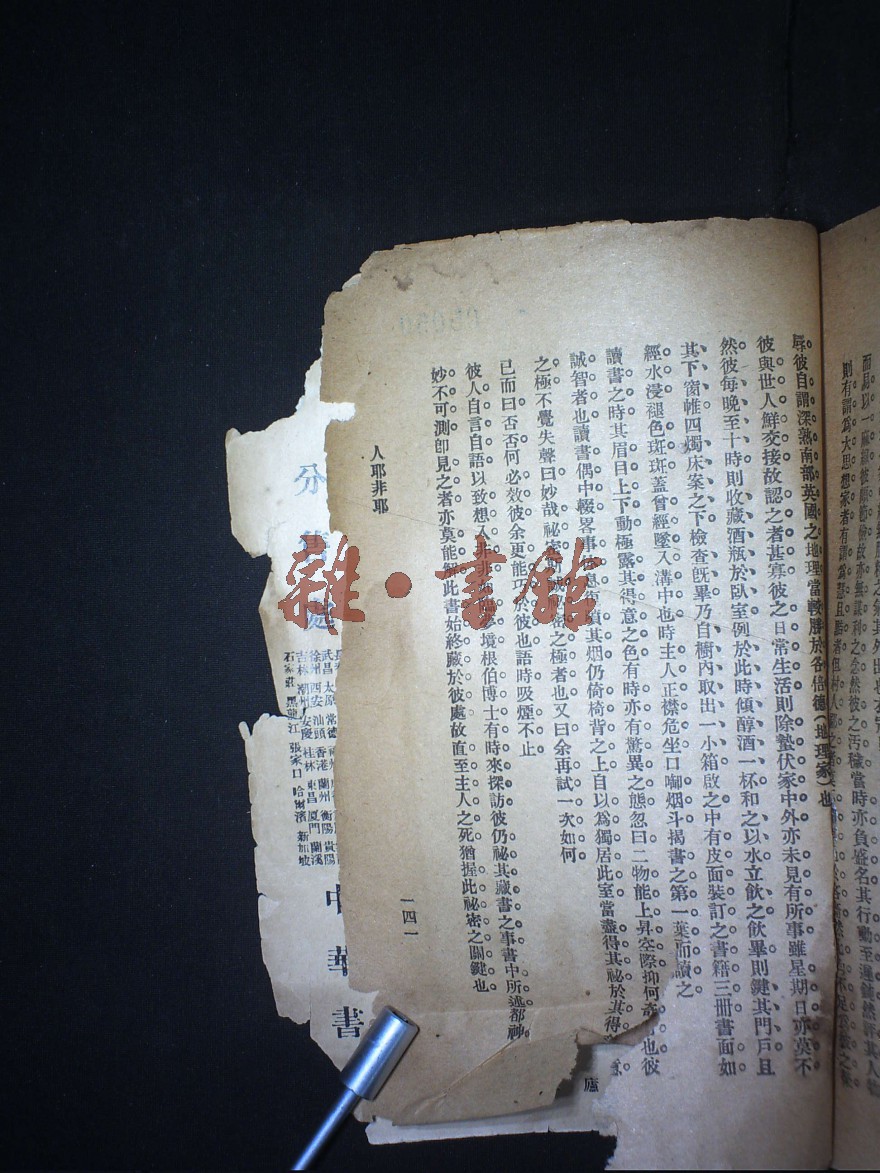 辱彼自謂深熟南部英國之地理當較勝於各倍德(地理家)也
彼與世人鮮交接故認之者甚寡彼之日常生活則除蟄伏家中外亦未見有所事雖星期日亦莫不
然彼每晚至十時則收藏酒瓶於臥室例於此時傾醇酒一杯和之以水立飲之飲畢則鍵其門戶且
其下窗帷四燭床案之下檢查旣畢乃自櫥內取出一小箱啟之中有皮面裝訂之書籍三冊書面如
經水浸褪色斑斑蓋曾經墜入溝中也時主人正襟危坐口啣烟斗揭書之第一葉而讀之
讀書之時其眉目上下動極露其得意之色有時亦有驚異之態忽曰二物能上昇空際抑何奇
也彼
誠智者也讀書偶中輟畧事
其烟仍倚椅背之上自以為獨居此室當盡得其祕於其得
之極不覺失聲曰妙哉祕密
之極者也又曰余再試一次如何
已而曰否否何必效彼余更能
於彼也語時吸煙不止
彼人自言自語以致想入非非
境根伯博士有時來探訪彼仍祕其藏書之事書中所述都神
妙不可測卽見之者亦莫能解此書始終藏於彼處故直至主人之死猶握此祕密之關鍵也
人耶非耶
一四一
分
武昌 太原 常德
徐州 西安 汕頭 香港 蘭州 衡陽 貴陽
吉林 潮州 安慶 桂林 東昌 厦門 蘭溪
石家莊 黑龍江 張家口 哈爾濱 新加坡
中華書
廬
雜·書館